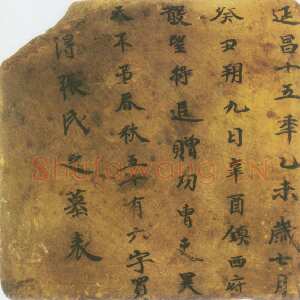 延昌十五年乙未歲七月
癸丑朔九日辛酉鎮西府
散望將追贈功曹吏吴
春秋五十有六字買
得張氏之墓表
ShuFaWang.CN